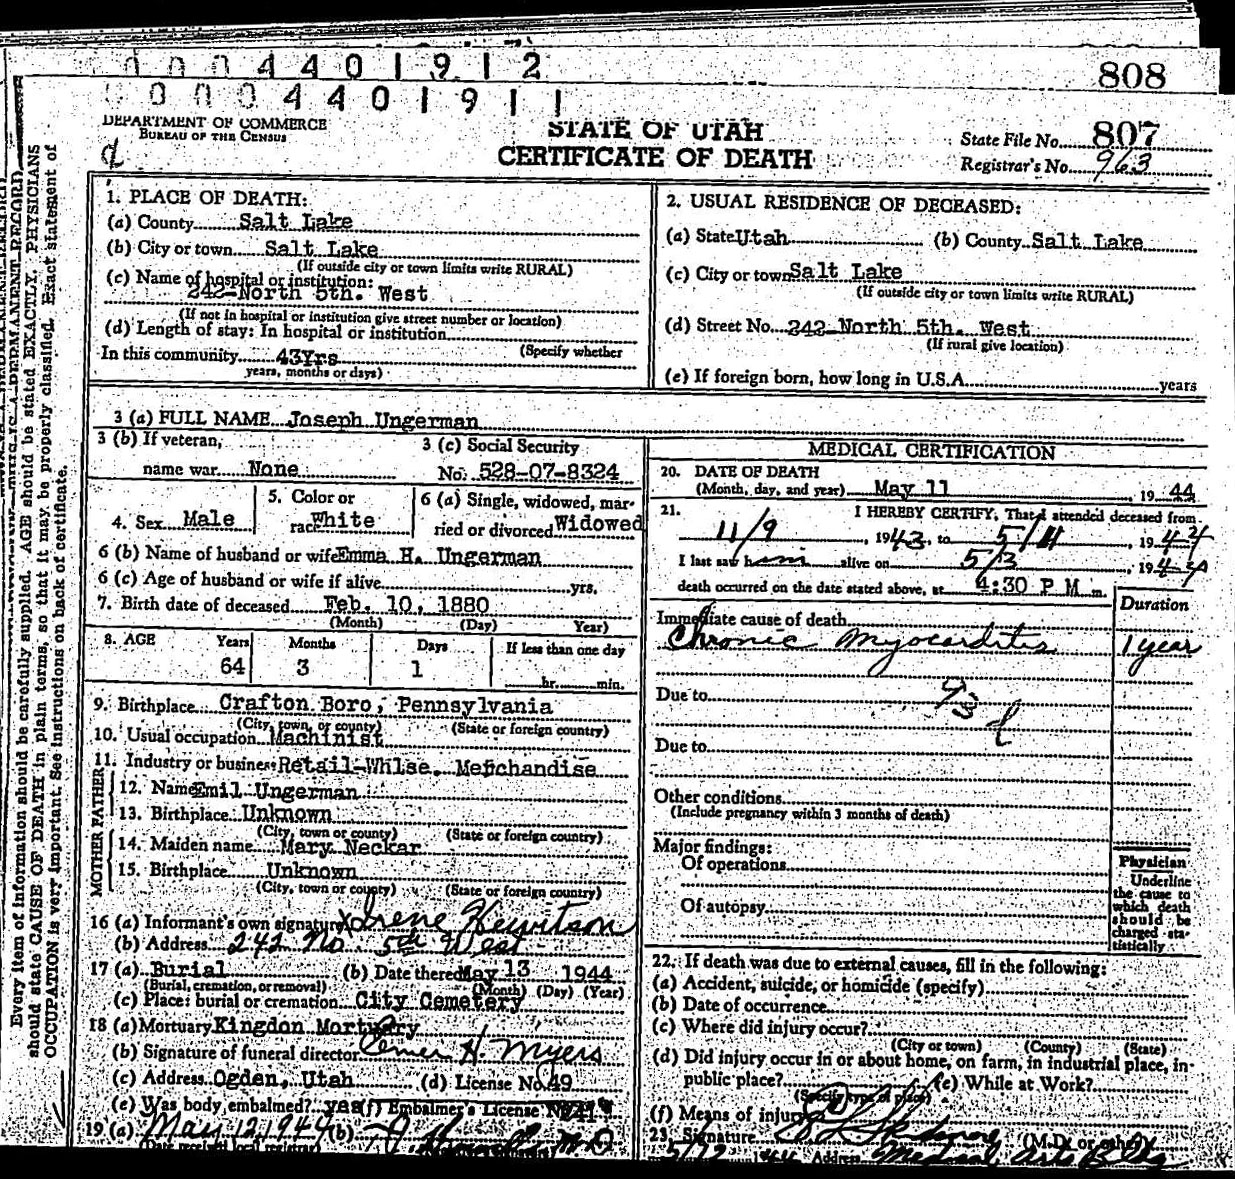 0004401912
808
0004401911
DEPARTMENT OF COMMERCE
BUREAU OF THE CENSUS
STATE OF UTAH
CERTIFICATE OF DEATH
State File No. 807
Registrar's No. 963
Every item of information should be carefully supplied. AGE should be stated EXACTLY. PHYSICIANS
should state CAUSE OF DEATH in plain terms, so that it may be properly classified. Exact statement of
OCCUPATION is very important. See instructions on back of certificate.
1. PLACE OF DEATH:
(a) County Salt Lake
(b) City or town Salt Lake
(If outside city or town limits write RURAL)
(c) Name of hospital or institution:
242-North 5th. West
(If not in hospital or institution give street number or location)
(d) Length of stay: In hospital or institution
(Specify whether
In this community 43Yrs
years, months or days)
2. USUAL RESIDENCE OF DECEASED:
(a) State Utah (b) County Salt Lake
(c) City or town Salt Lake
(If outside city or town limits write RURAL)
(d) Street No. 242-North 5th. West
(If rural give location)
(e) If foreign born, how long in U.S.A. years
3 (a) FULL NAME Joseph Ungerman
3 (b) If veteran,
name war None
3 (c) Social Security
No. 528-07-8324
4. Sex Male
5. Color or
race White
6 (a) Single, widowed, mar-
ried or divorced Widowed
6 (b) Name of husband or wife Emma H. Ungerman
6 (c) Age of husband or wife if alive yrs.
7. Birth date of deceased Feb. 10, 1880
(Month) (Day) Year)
8. AGE Years Months Days If less than one day
64 3 1 hr. min.
9. Birthplace Crafton Boro, Pennsylvania
(City, town, or county) (State or foreign country)
10. Usual occupation Machinist
11. Industry or business Retail-Whlse. Merchandise
FATHER
12. Name Emil Ungerman
13. Birthplace Unknown
(City, town or county) (State or foreign country)
MOTHER
14. Maiden name Mary Neckar
15. Birthplace Unknown
(City, town or county) (State or foreign country)
16 (a) Informant's own signature X Irene Hewitson
(b) Address 242 No 5th West
17 (a) Burial (b) Date thereof May 13 1944
(Burial, cremation, or removal) (Month) (Day) (Year)
(c) Place: burial or cremation City Cemetery
18 (a) Mortuary Kingdon Mortuary
(b) Signature of funeral director Elmer H. Myers
(c) Address Ogden, Utah (d) License No. 49
(e) Was body embalmed? yes (f) Embalmer's License No.
19 (a) May 12, 1944 (b) M D
(Date received local registrar)
MEDICAL CERTIFICATION
20. DATE OF DEATH
(Month, day, and year) May 11, 1944
21. I HEREBY CERTIFY, That I attended deceased from
11/9, 1943, to 5/11, 1944
I last saw him alive on 5/3, 1944
death occurred on the date stated above, at 4:30 P M m.
Duration
Immediate cause of death
Chronic Myocarditis 1 year
Due to
93
d
Due to
Other conditions
(Include pregnancy within 3 months of death)
Major findings:
Of operations
Of autopsy
Physician
Underline
the cause to
which death
should be
charged sta-
tistically
22. If death was due to external causes, fill in the following:
(a) Accident, suicide, or homicide (specify)
(b) Date of occurrence
(c) Where did injury occur?
(City or town) (County) (State)
(d) Did injury occur in or about home, on farm, in industrial place, in
public place? (e) While at Work?
(Specify type of place)
(f) Means of injury
23. Signature (M.D. or other)
5/12 44 Address Medical Arts Bldg